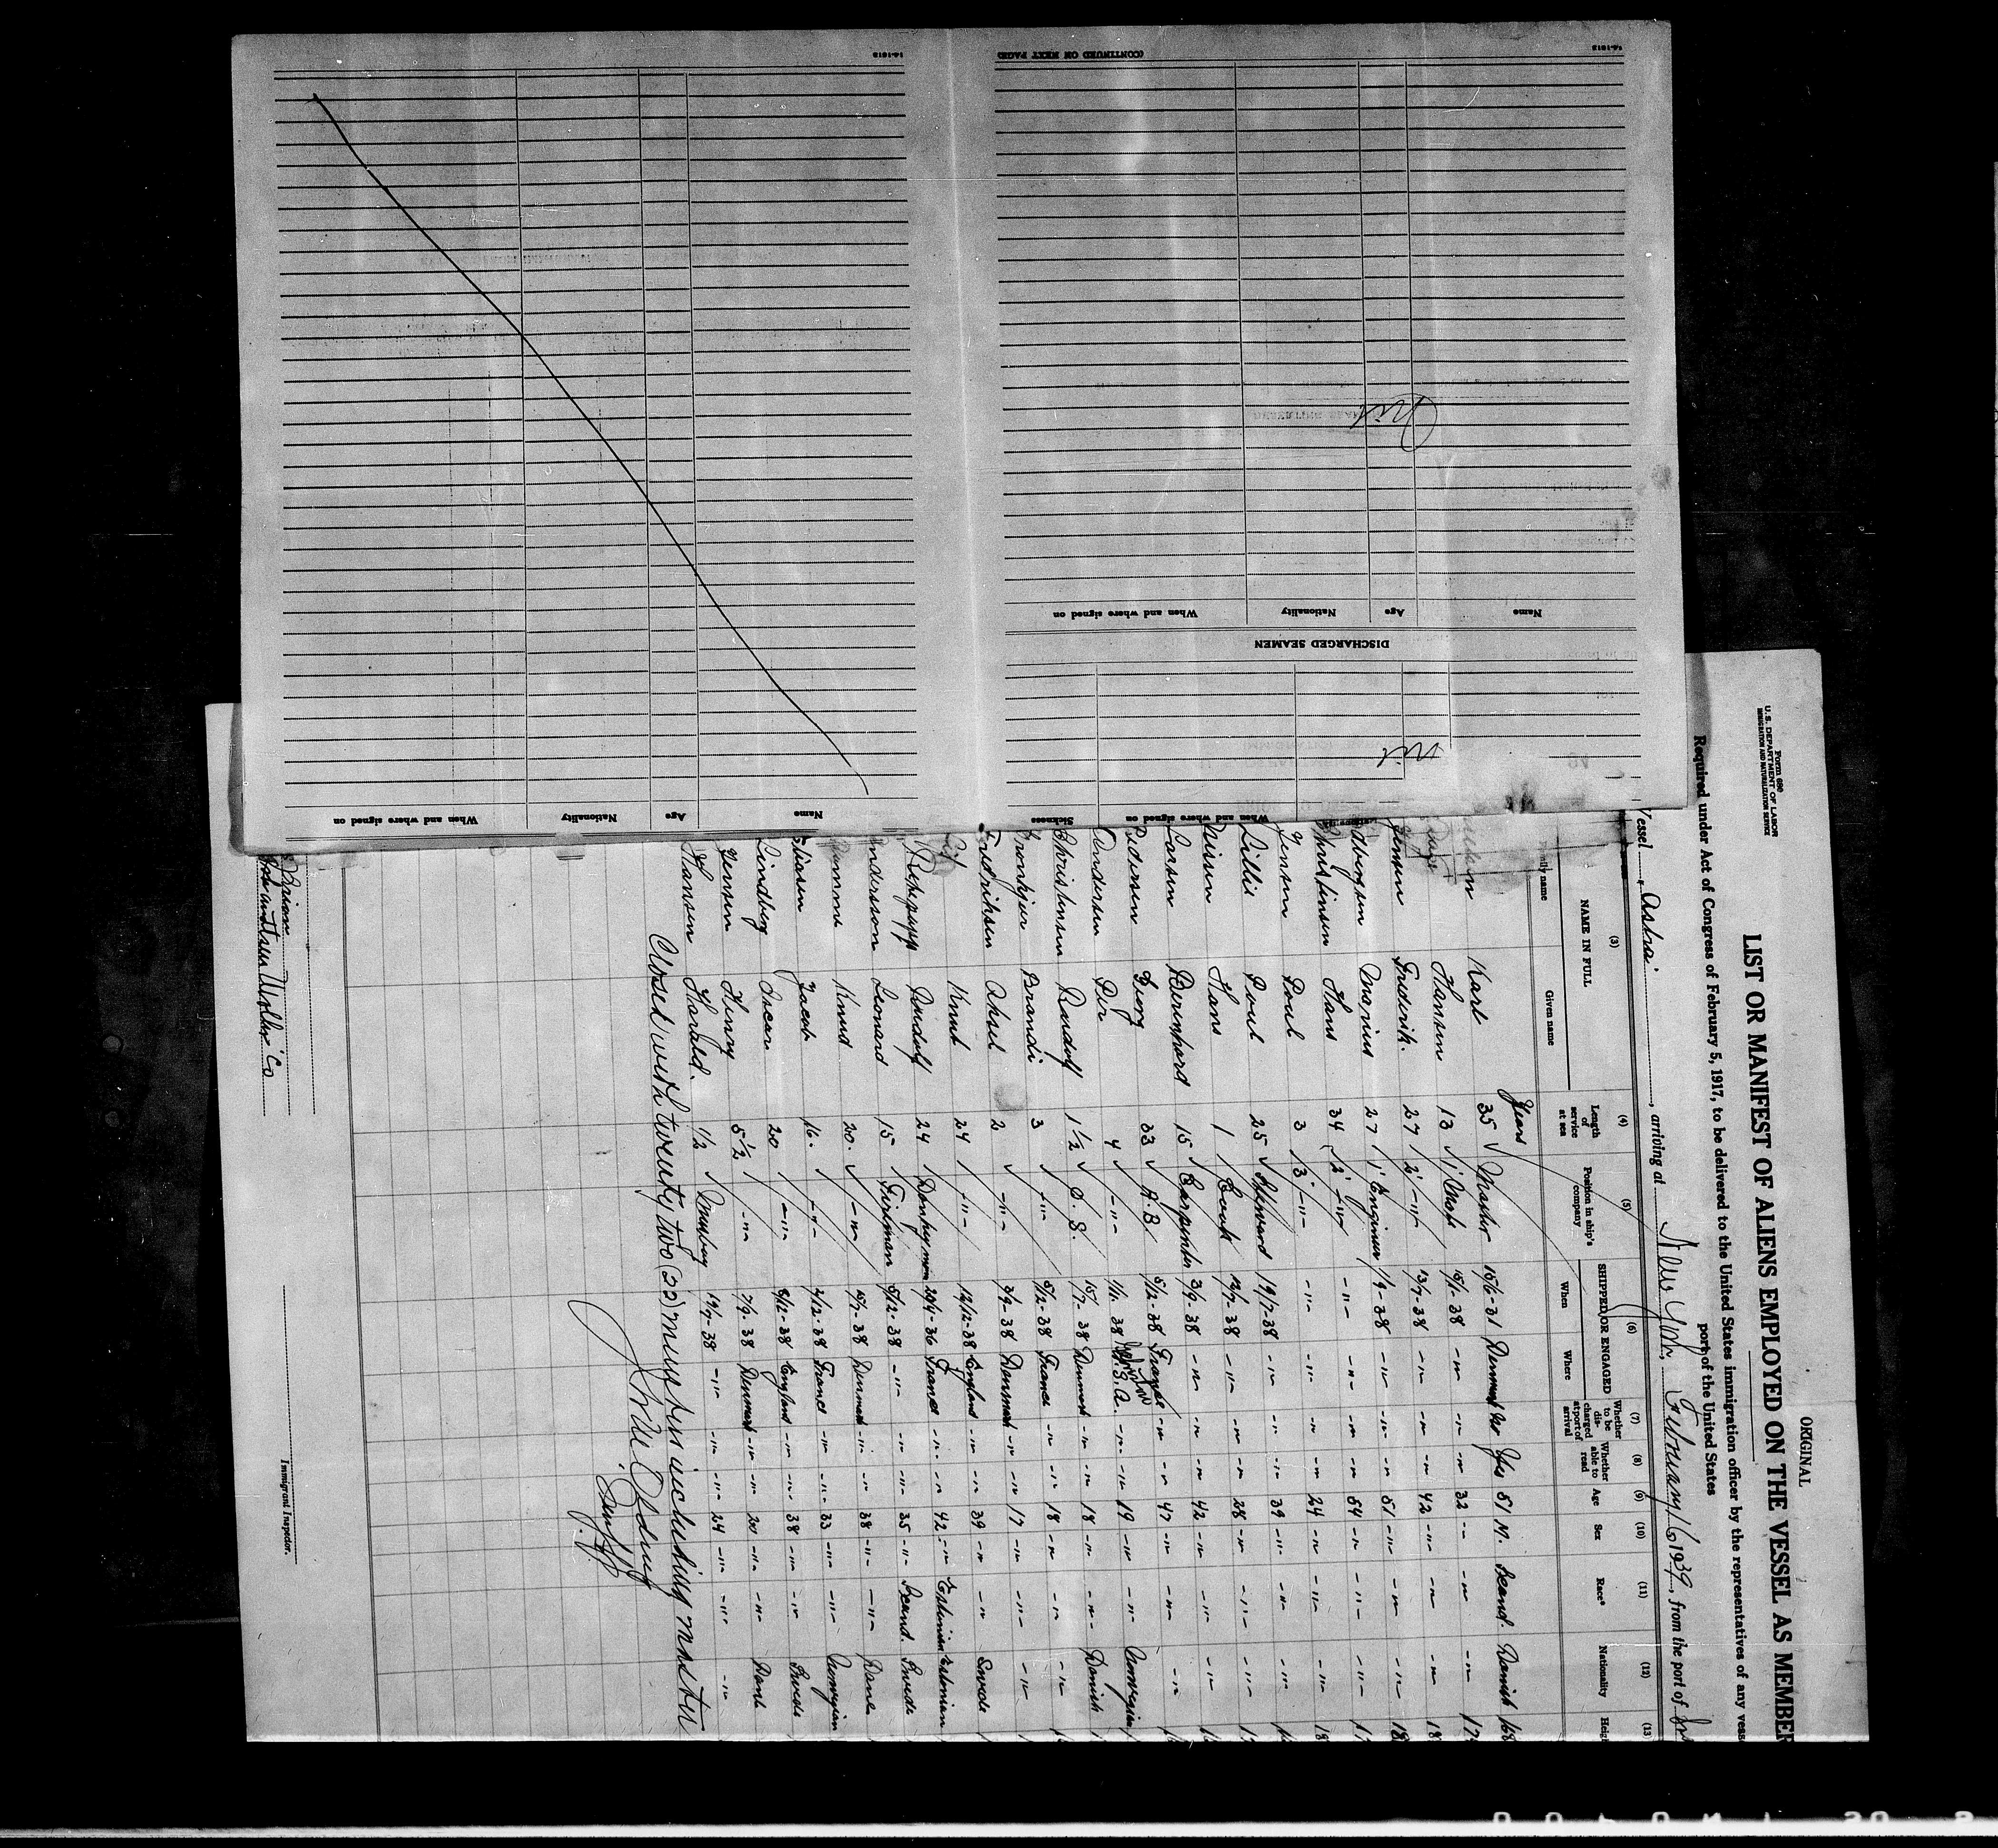 14-1618
(CONTINUED ON NEXT PAGE)
14-1618
Nil
Name
Age
Nationality
When and where signed on
DISCHARGED SEAMEN
Nil
Name
Age
Nationality
When and where signed on
When and where signed on
Sickness
Form 680
U. S. DEPARTMENT OF LABOR
IMMIGRATION AND NATURALIZATION SERVICE
ORIGINAL
LIST OR MANIFEST OF ALIENS EMPLOYED ON THE VESSEL AS MEMBER
Required under Act of Congress of February 5, 1917, to be delivered to the United States immigration officer by the representatives of any vess
port of the United States
Vessel Astra, arriving at New York, February 6 1939, from the port of
(3) (4) (5) (6) (7) (8) (9) (10) (11) (12) (13)
NAME IN FULL Length of service at sea Position in ship's company SHIPPED OR ENGAGED Whether to be discharged at port of arrival Whether able to read Age Sex Race* Nationality Heig
Given name When Where
Years
Karl 35 Master 15/6-31 Denmark No Yes 51 M. Scand. Danish 168
Hansen 13 1' Mate 15/1-38 -"- -"- -"- 32 -"- -"- -"- 17
Jensen Frederik. 27 2' -"- 13/7-38 -"- -"- -"- 42 -"- -"- -"- 18
Marius 27 1' Engineer 1/9-38 -"- -"- -"- 51 -"- -"- -"- 18
Christensen Hans 34 2' -"- -"- -"- -"- -"- 54 -"- -"- -"- 17
Jensen Poul 3 3' -"- -"- -"- -"- -"- 24 -"- -"- -"- 18
Lillie Poul 25 Steward 19/7-38 -"- -"- -"- 39 -"- -"- -"-
Nissen Hans 1 Cook 12/7-38 -"- -"- -"- 28 -"- -"- -"- 17
Larsen Bernhard 15 Carpenter 3/9-38 -"- -"- -"- 42 -"- -"- -"-
Pedersen Georg 33 A.B. 5/12-38 France -"- -"- 47 -"- -"- -"-
Andersen Per 4 -"- 1/11-38 U.S.A. -"- -"- 19 -"- -"- Norwegian
Christensen Rudolf 1½ O.S. 15/7-38 Denmark -"- -"- 18 -"- -"- Danish
Brandi 3 -"- 5/12-38 France -"- -"- 18 -"- -"- -"-
Fredriksen Aksel 2 -"- 3/9-38 Denmark -"- -"- 17 -"- -"- -"-
Knut 24 -"- 12/12-38 England -"- -"- 39 -"- -"- Swede
Rudolf 24 Donkeyman 29/4-36 France -"- -"- 42 -"- Estonian Estonian
Andersson Leonard 15 Fireman 5/12-38 -"- -"- -"- 35 -"- Scand. Swede
Knud 20 -"- 15/7-38 Denmark -"- -"- 38 -"- -"- Dane
Jacob 16. -"- 2/12-38 France -"- -"- 33 -"- -"- Norwegian
Lindberg Oscar 20 -"- 8/12-38 England -"- -"- 38 -"- -"- Swede
Jensen Henry 5½ -"- 7/9-38 Denmark -"- -"- 20 -"- -"- Dane
Hansen Harald. 1/2 Messboy 19/7-38 -"- -"- -"- 24 -"- -"- -"-
Closed with twenty two (22) members including master
Name
Age
Nationality
When and where signed on
Immigrant Inspector.